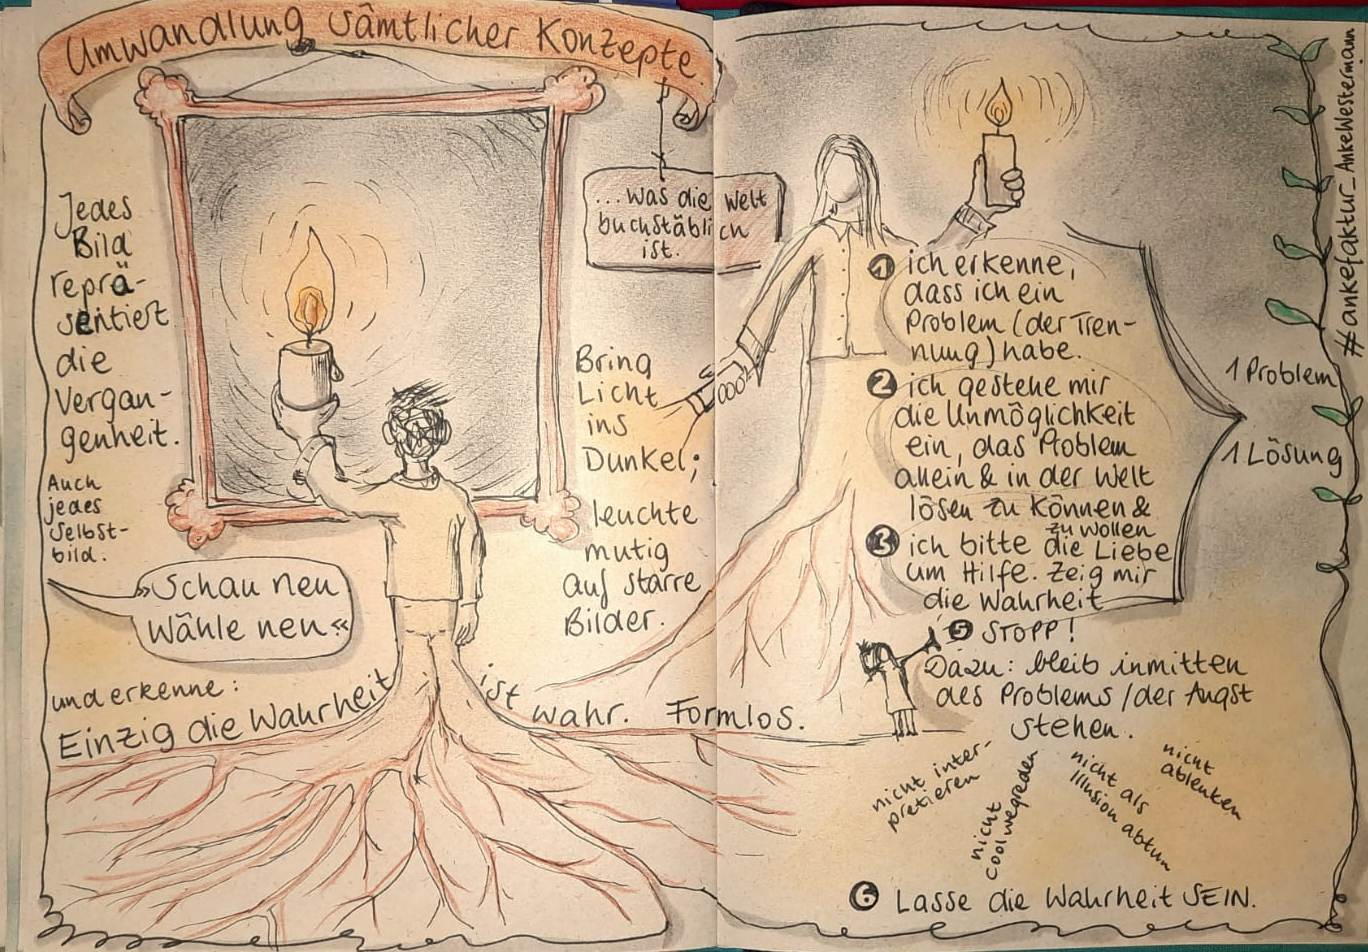 Umwandlung sämtlicher Konzepte
Jedes
Bild
reprä-
sentiert
die
Vergan-
genheit.
Auch
jedes
Selbst-
bild.
»Schau neu
Wähle neu«
und erkenne:
Einzig die Wahrheit ist wahr. Formlos.
...was die Welt
buchstäblich
ist.
Bring
Licht
ins
Dunkel;
leuchte
mutig
auf starre
Bilder.
1 ich erkenne,
dass ich ein
Problem (der Tren-
nung) habe.
2 ich gestehe mir
die Unmöglichkeit
ein, das Problem
allein & in der Welt
lösen zu können &
zu wollen
3 ich bitte die Liebe
um Hilfe. Zeig mir
die Wahrheit
1 Problem
1 Lösung
5 STOPP!
Dazu: bleib inmitten
des Problems/der Angst
stehen.
nicht inter-
pretieren
nicht
coolwegreden
nicht als
Illusion abtun
nicht
ablenken
6 Lasse die Wahrheit SEIN.
#ankefaktur_AnkeWestermann